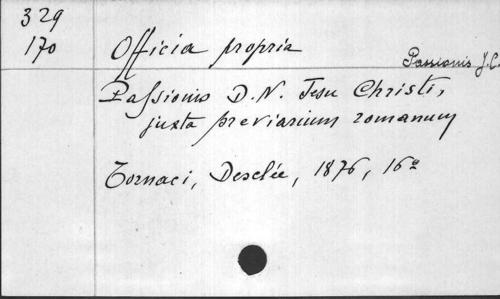 329
170
Officia propria
Passionis J.C.
Passionis D.N. Jesu Christi,
juxta breviarium romanum
Tornaci, Desclée, 1876, 16º